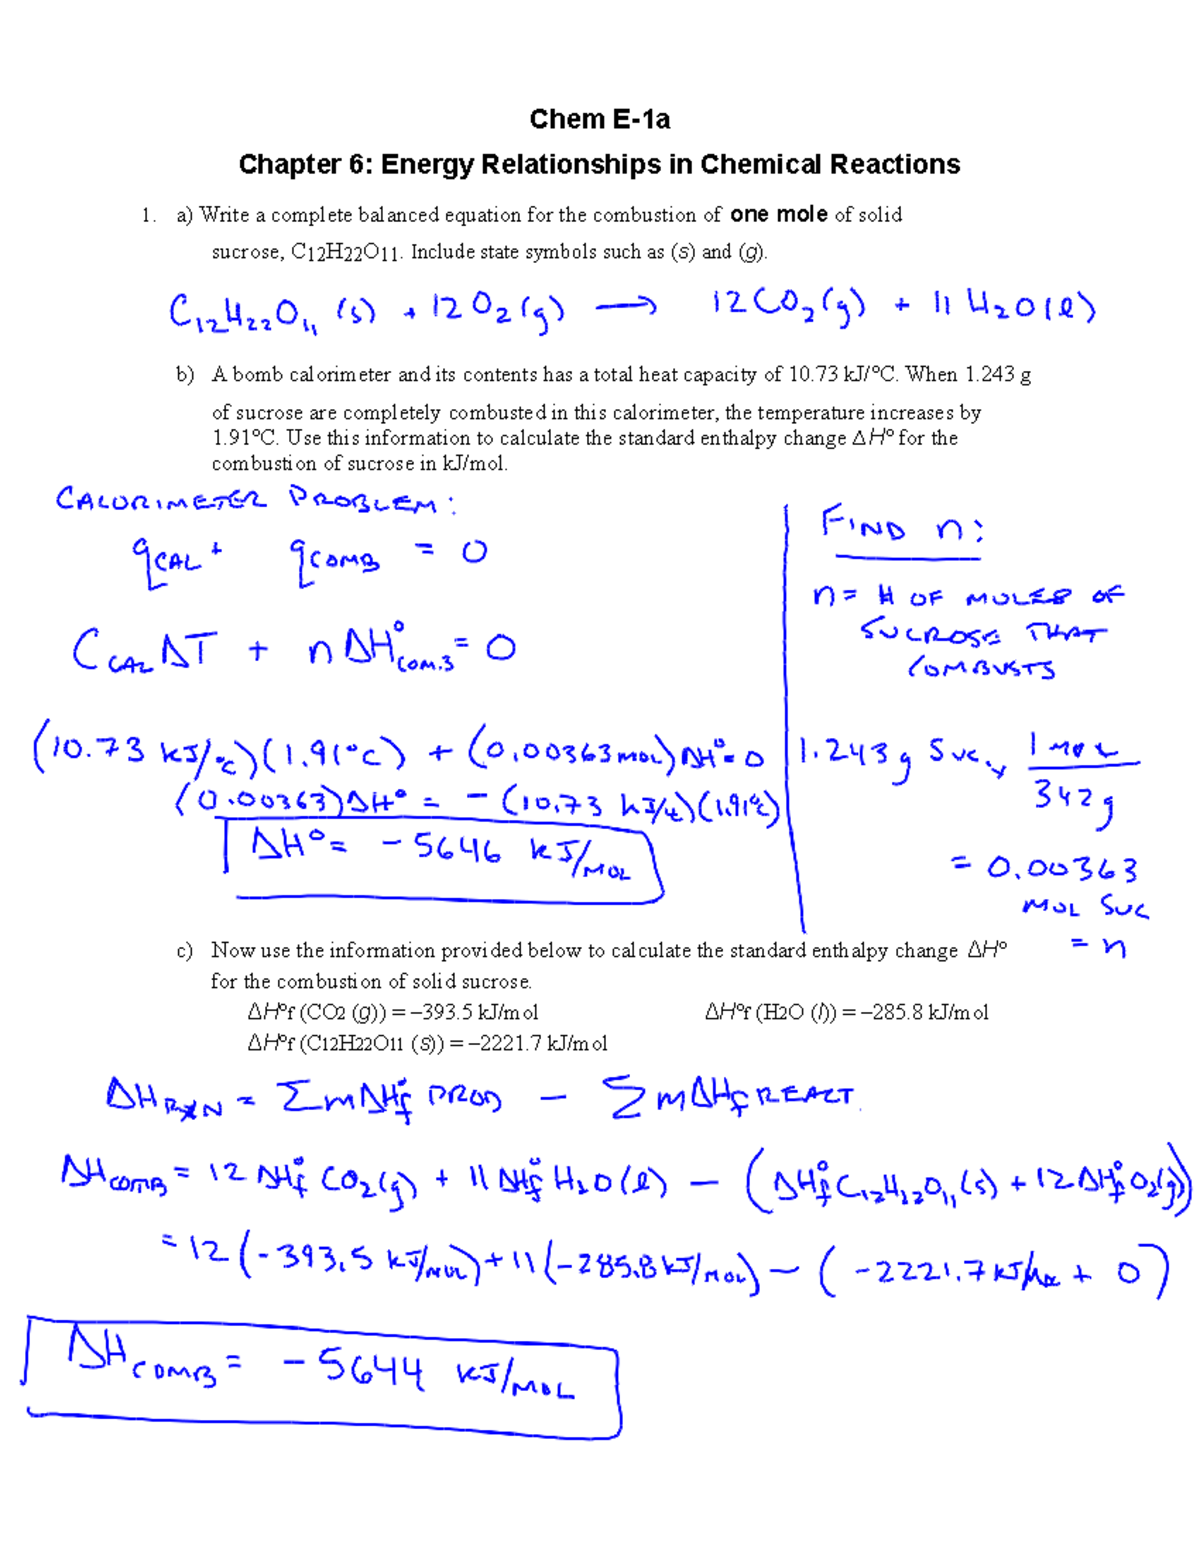 Chem E-1a
Chapter 6: Energy Relationships in Chemical Reactions
1. a) Write a complete balanced equation for the combustion of one mole of solid
sucrose, C12H22O11. Include state symbols such as (s) and (g).
C₁₂H₂₂O₁₁ (s) + 12 O₂ (g) → 12 CO₂ (g) + 11 H₂O (l)
b) A bomb calorimeter and its contents has a total heat capacity of 10.73 kJ/°C. When 1.243 g
of sucrose are completely combusted in this calorimeter, the temperature increases by
1.91°C. Use this information to calculate the standard enthalpy change ΔH° for the
combustion of sucrose in kJ/mol.
CALORIMETER PROBLEM:
q_CAL + q_COMB = 0
C_CAL ΔT + n ΔH°_COMB = 0
(10.73 kJ/°C)(1.91°C) + (0.00363 MOL) ΔH° = 0
(0.00363) ΔH° = -(10.73 kJ/°C)(1.91°C)
ΔH° = -5646 kJ/MOL
FIND n:
n = # OF MOLES OF
SUCROSE THAT
COMBUSTS
1.243 g SUC × 1 MOL / 342 g
= 0.00363
MOL SUC
= n
c) Now use the information provided below to calculate the standard enthalpy change ΔH°
for the combustion of solid sucrose.
ΔH°f (CO2 (g)) = –393.5 kJ/mol ΔH°f (H2O (l)) = –285.8 kJ/mol
ΔH°f (C12H22O11 (s)) = –2221.7 kJ/mol
ΔH_RXN = Σm ΔH°f PROD – Σm ΔHf REACT.
ΔH_COMB = 12 ΔH°f CO₂(g) + 11 ΔH°f H₂O(l) – (ΔH°f C₁₂H₂₂O₁₁(s) + 12 ΔH°f O₂(g))
= 12(-393.5 kJ/MOL) + 11(-285.8 kJ/MOL) – (-2221.7 kJ/MOL + 0)
ΔH_COMB = -5644 kJ/MOL